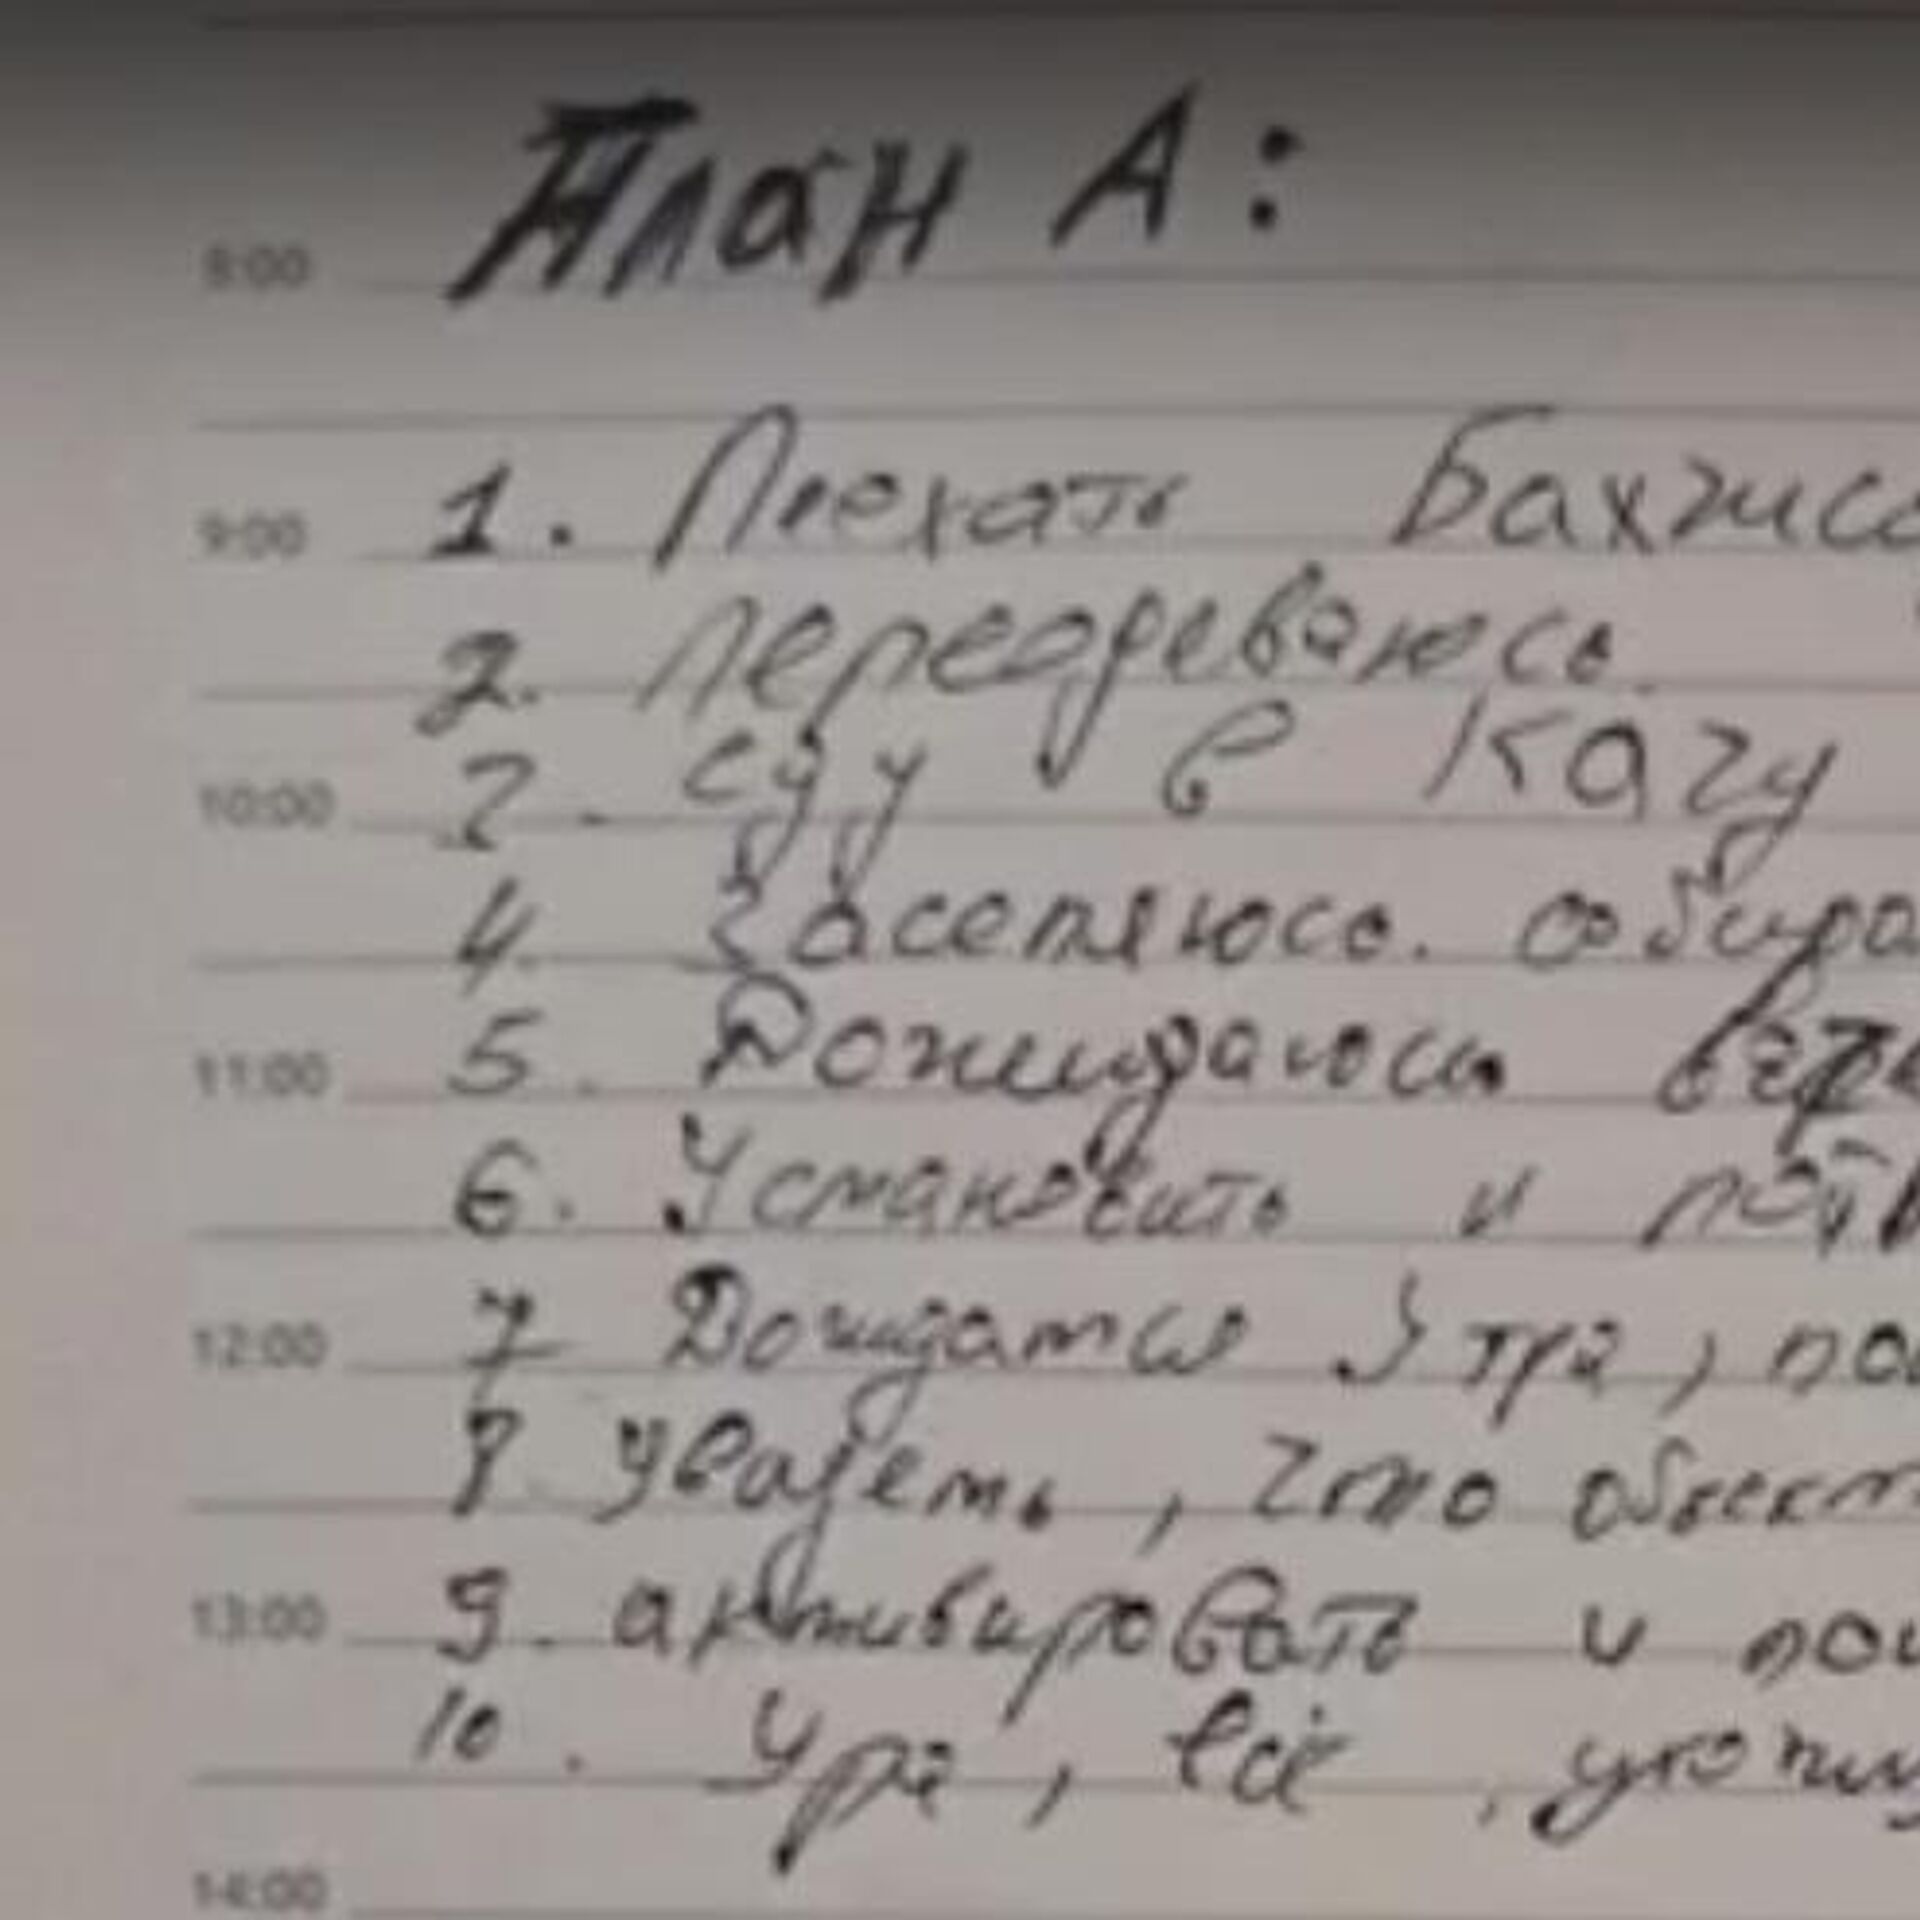 План А:
8:00
1. Поехать Бахчиса
9:00
2. переодеваюсь.
3. еду в Качу
10:00
4. Заселяюсь. собира
5. Дожидаюсь
11:00
6. Установить и
7 Дождаться Утра, по
12:00
8 увидеть, что объект
9. активировать и по
13:00
10. Ура, всё, ухожу
14:00